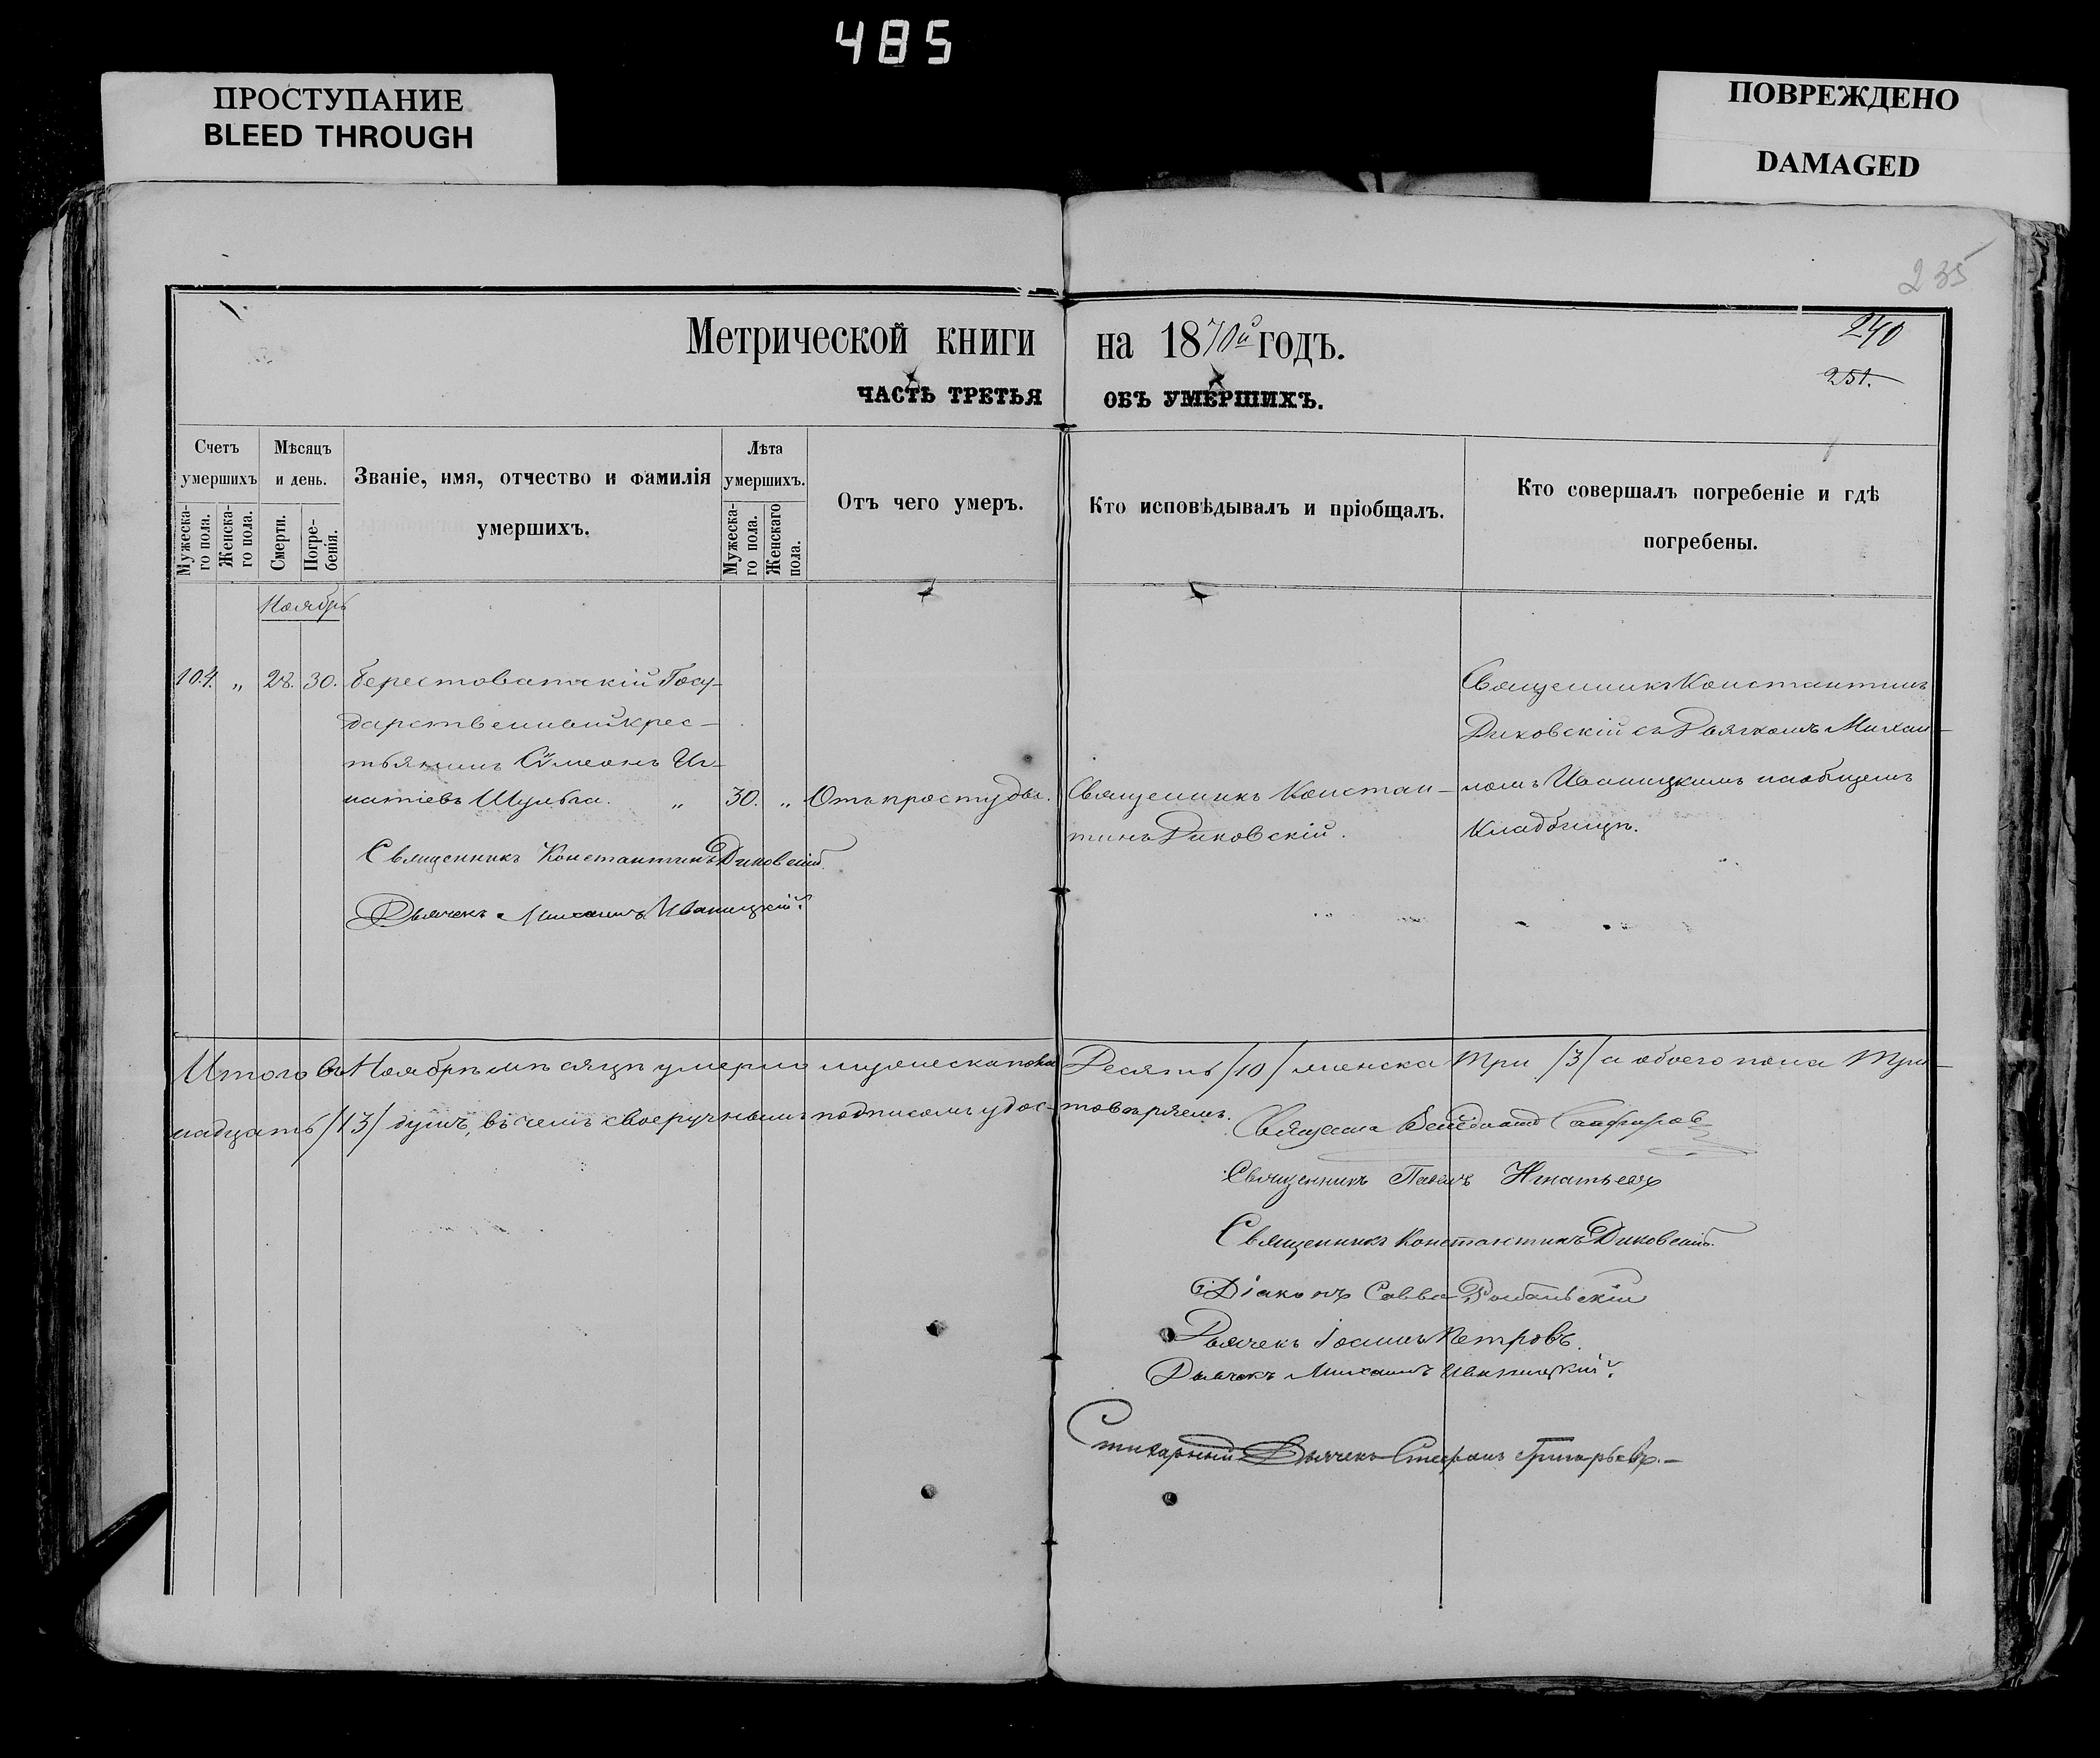 485
ПРОСТУПАНИЕ
BLEED THROUGH
ПОВРЕЖДЕНО
DAMAGED
235
240
251.
Метрической книги на 1870й годъ.
ЧАСТЬ ТРЕТЬЯ ОБЪ УМЕРШИХЪ.
Счетъ умершихъ
Мужеска-го пола.
Женска-го пола.
Мѣсяцъ и день.
Смерти.
Погре-бенія.
Званіе, имя, отчество и фамилія умершихъ.
Лѣта умершихъ.
Мужеска-го пола.
Женскаго пола.
Отъ чего умеръ.
Кто исповѣдывалъ и пріобщалъ.
Кто совершалъ погребеніе и гдѣ погребены.
Ноябрь
104. „ 28. 30. Берестоватскій Госу-
дарственный крес-
тьянинъ Сѵмеонъ Иг-
натіевъ Шульга. „ 30. „ Отъ простуды.
Священникъ Констан-
тинъ Диковскій.
Священникъ Константинъ
Диковскій съ Дьячкомъ Михаи-
ломъ Иваницкимъ на общемъ
Кладбищѣ.
Священникъ Константинъ Диковскій.
Дьячекъ Михаилъ Иваницкій.
Итого въ Ноябрѣ мѣсяцѣ умерло мужеска пола Десять /10/ женска Три /3/ а обоего пола Три-
надцать /13/ душъ, въ чемъ своеручнымъ подписомъ удос-товѣряемъ.
Священникъ Павелъ Игнатьевъ
Священникъ Константинъ Диковскій.
Діаконъ Савва
Дьячекъ Іоаннъ Петровъ.
Дьячекъ Михаилъ Иваницкій.
Стихарный Дьячекъ Стефанъ Григорьевъ.